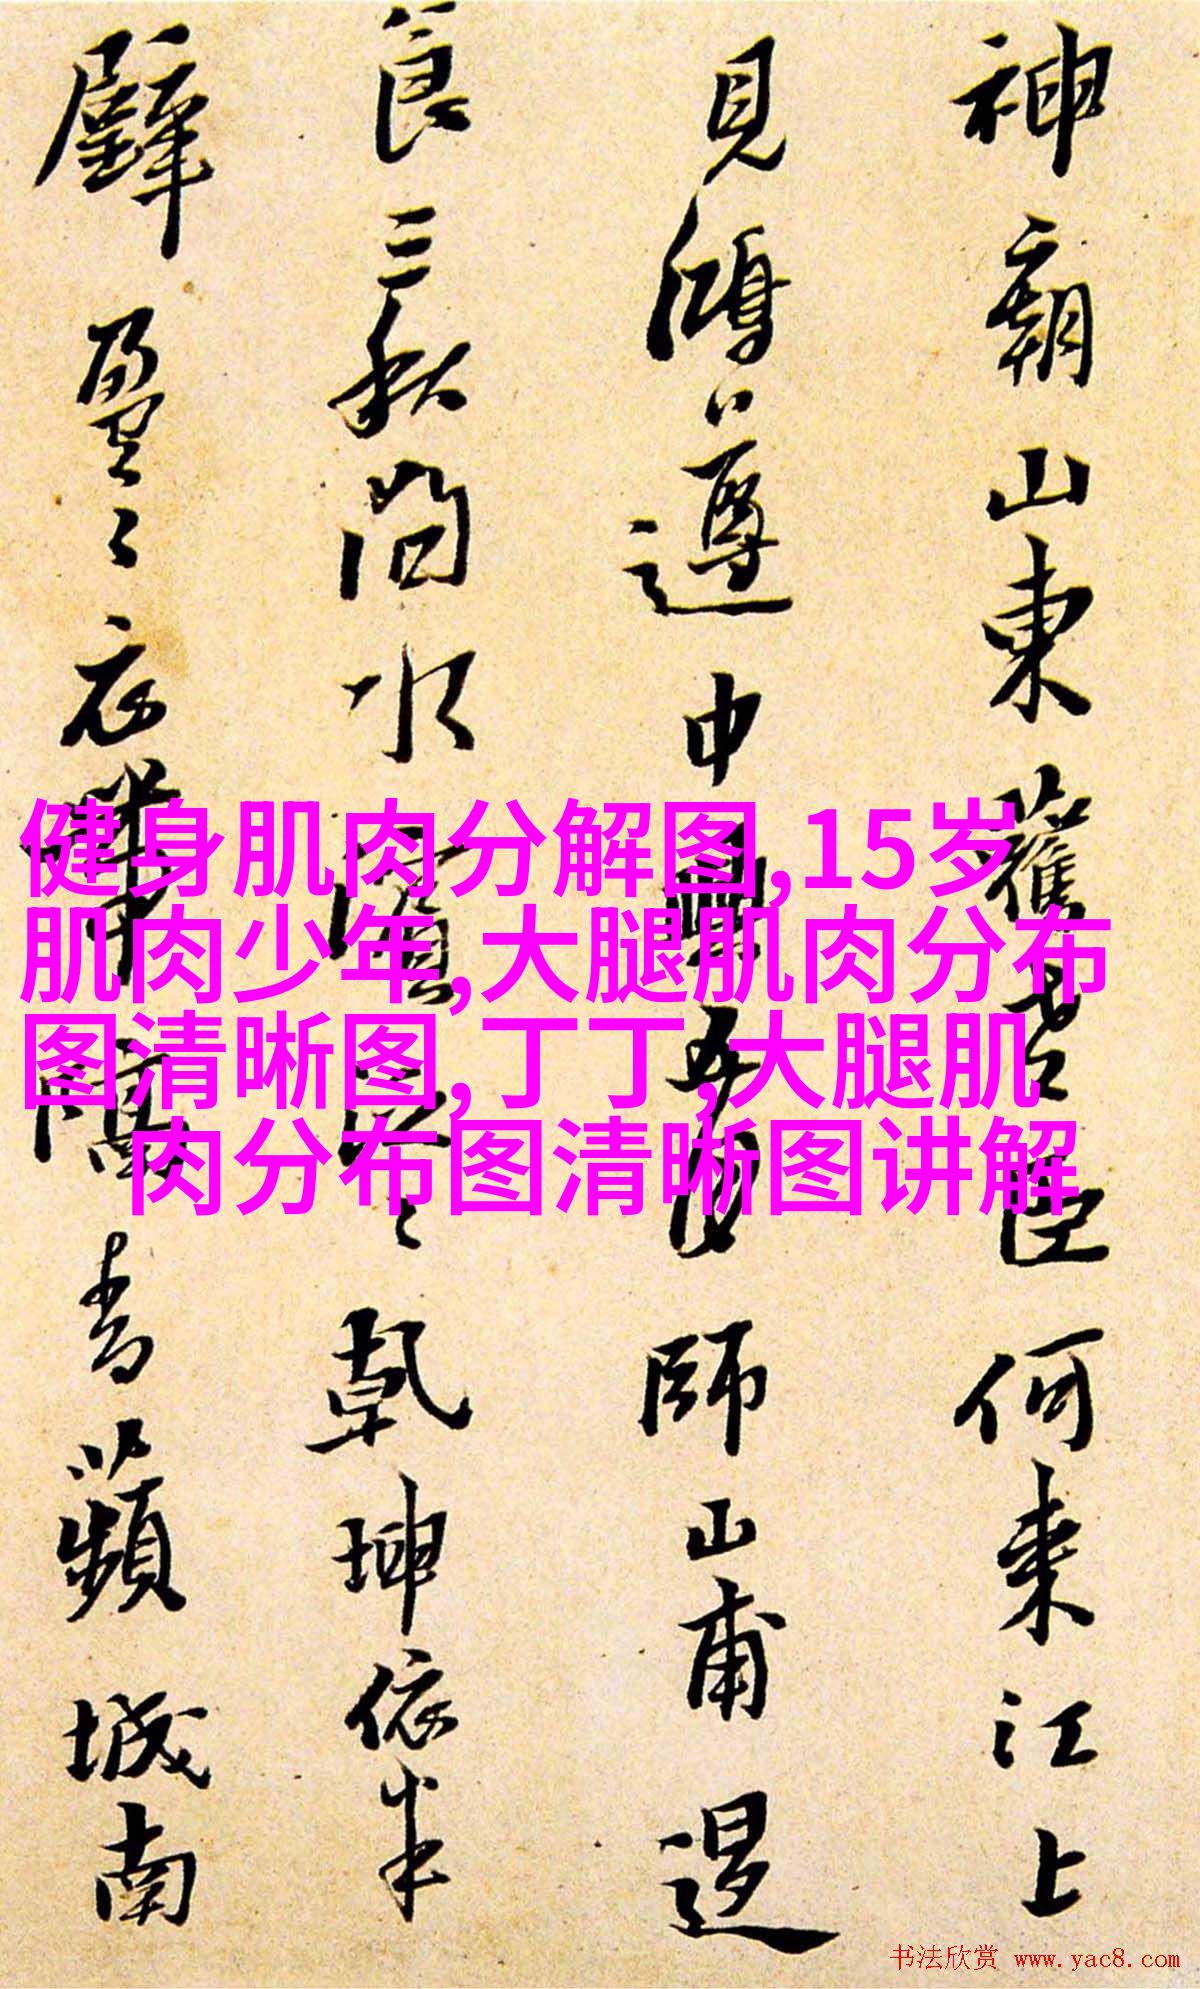 神廟山東舊書臣何来江上
見鴻遵中
師山甫過
食三秋間水
乾坤依半
壁盈〻衣
青蘋城南
健身肌肉分解图,15岁
肌肉少年,大腿肌肉分布
图清晰图,丁丁,大腿肌
肉分布图清晰图讲解
书法欣赏 www.yac8.com